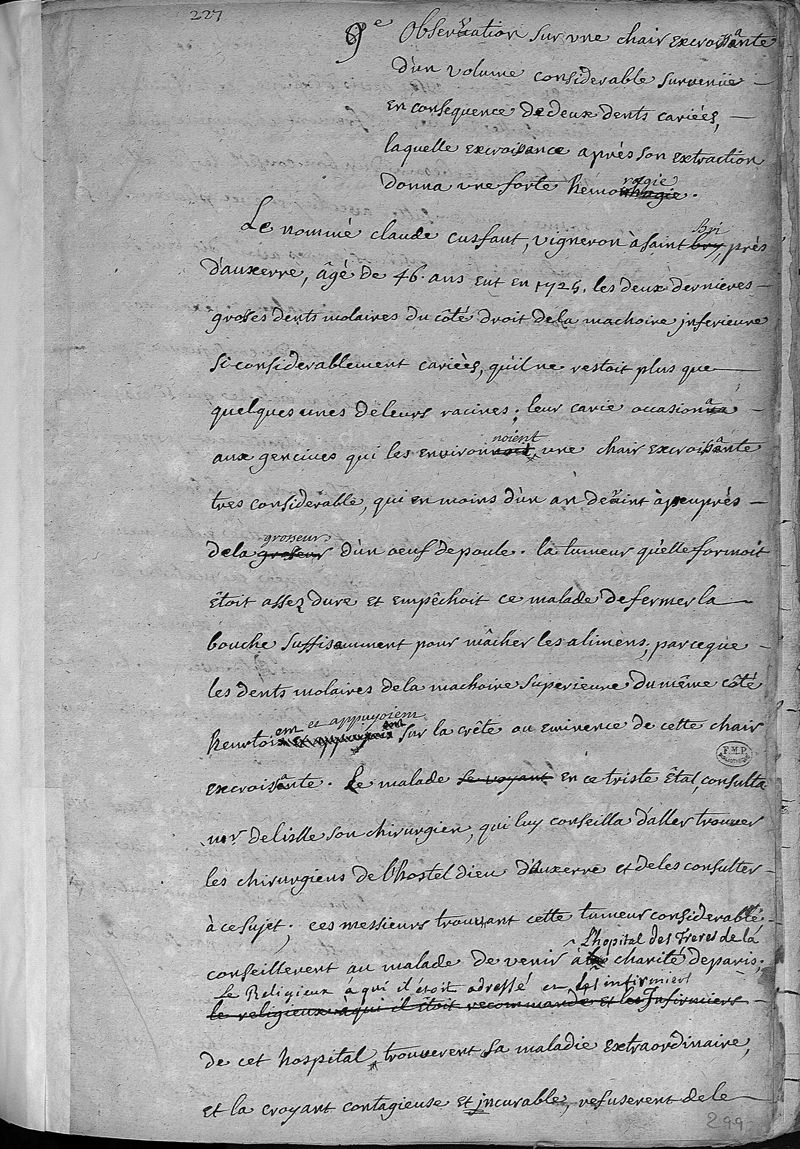 227
9e Observation sur une chair excroissante
d'un volume considerable survenüe
en consequence de deux dents cariées,
laquelle excroissance après son extraction
donna une forte hemorragie.
Le nommé claude cusfant, vigneron à saint bry Bri, près
d'auxerre, âgé de 46. ans eut en 1725. les deux dernieres
grosses dents molaires du côté droit de la machoire inferieure
si considerablement cariées, qu'il ne restoit plus que
quelques unes de leurs racines; leur carie occasionna
aux gencives qui les environnoient, une chair excroissante
tres considerable, qui en moins d'un an devint à peu près
de la grosseur d'un oeuf de poule. la tumeur qu'elle formoit
êtoit assez dure et empêchoit ce malade de fermer la
bouche suffisamment pour mâcher les alimens, parceque
les dents molaires de la machoire superieure du même côté
heurtoient et appuyoient sur la crête ou eminence de cette chair
excroissante. Le malade se voyant en ce triste êtat, consulta
mr. delisle son chirurgien, qui luy conseilla d'aller trouver
les chirurgiens de l'hostel dieu d'Auxerre et de les consulter
à ce sujet. ces messieurs trouvant cette tumeur considerable
conseillerent au malade de venir à l'hopital des Freres de la charité de paris;
le Religieux à qui il étoit adressé et les infirmiers
le religieux à qui il êtoit recommandé et les Infirmiers
de cet hospital, trouverent sa maladie extraordinaire,
et la croyant contagieuse et incurable, refuserent de le
F.M.P.
BIBLIOTHEQUE
299